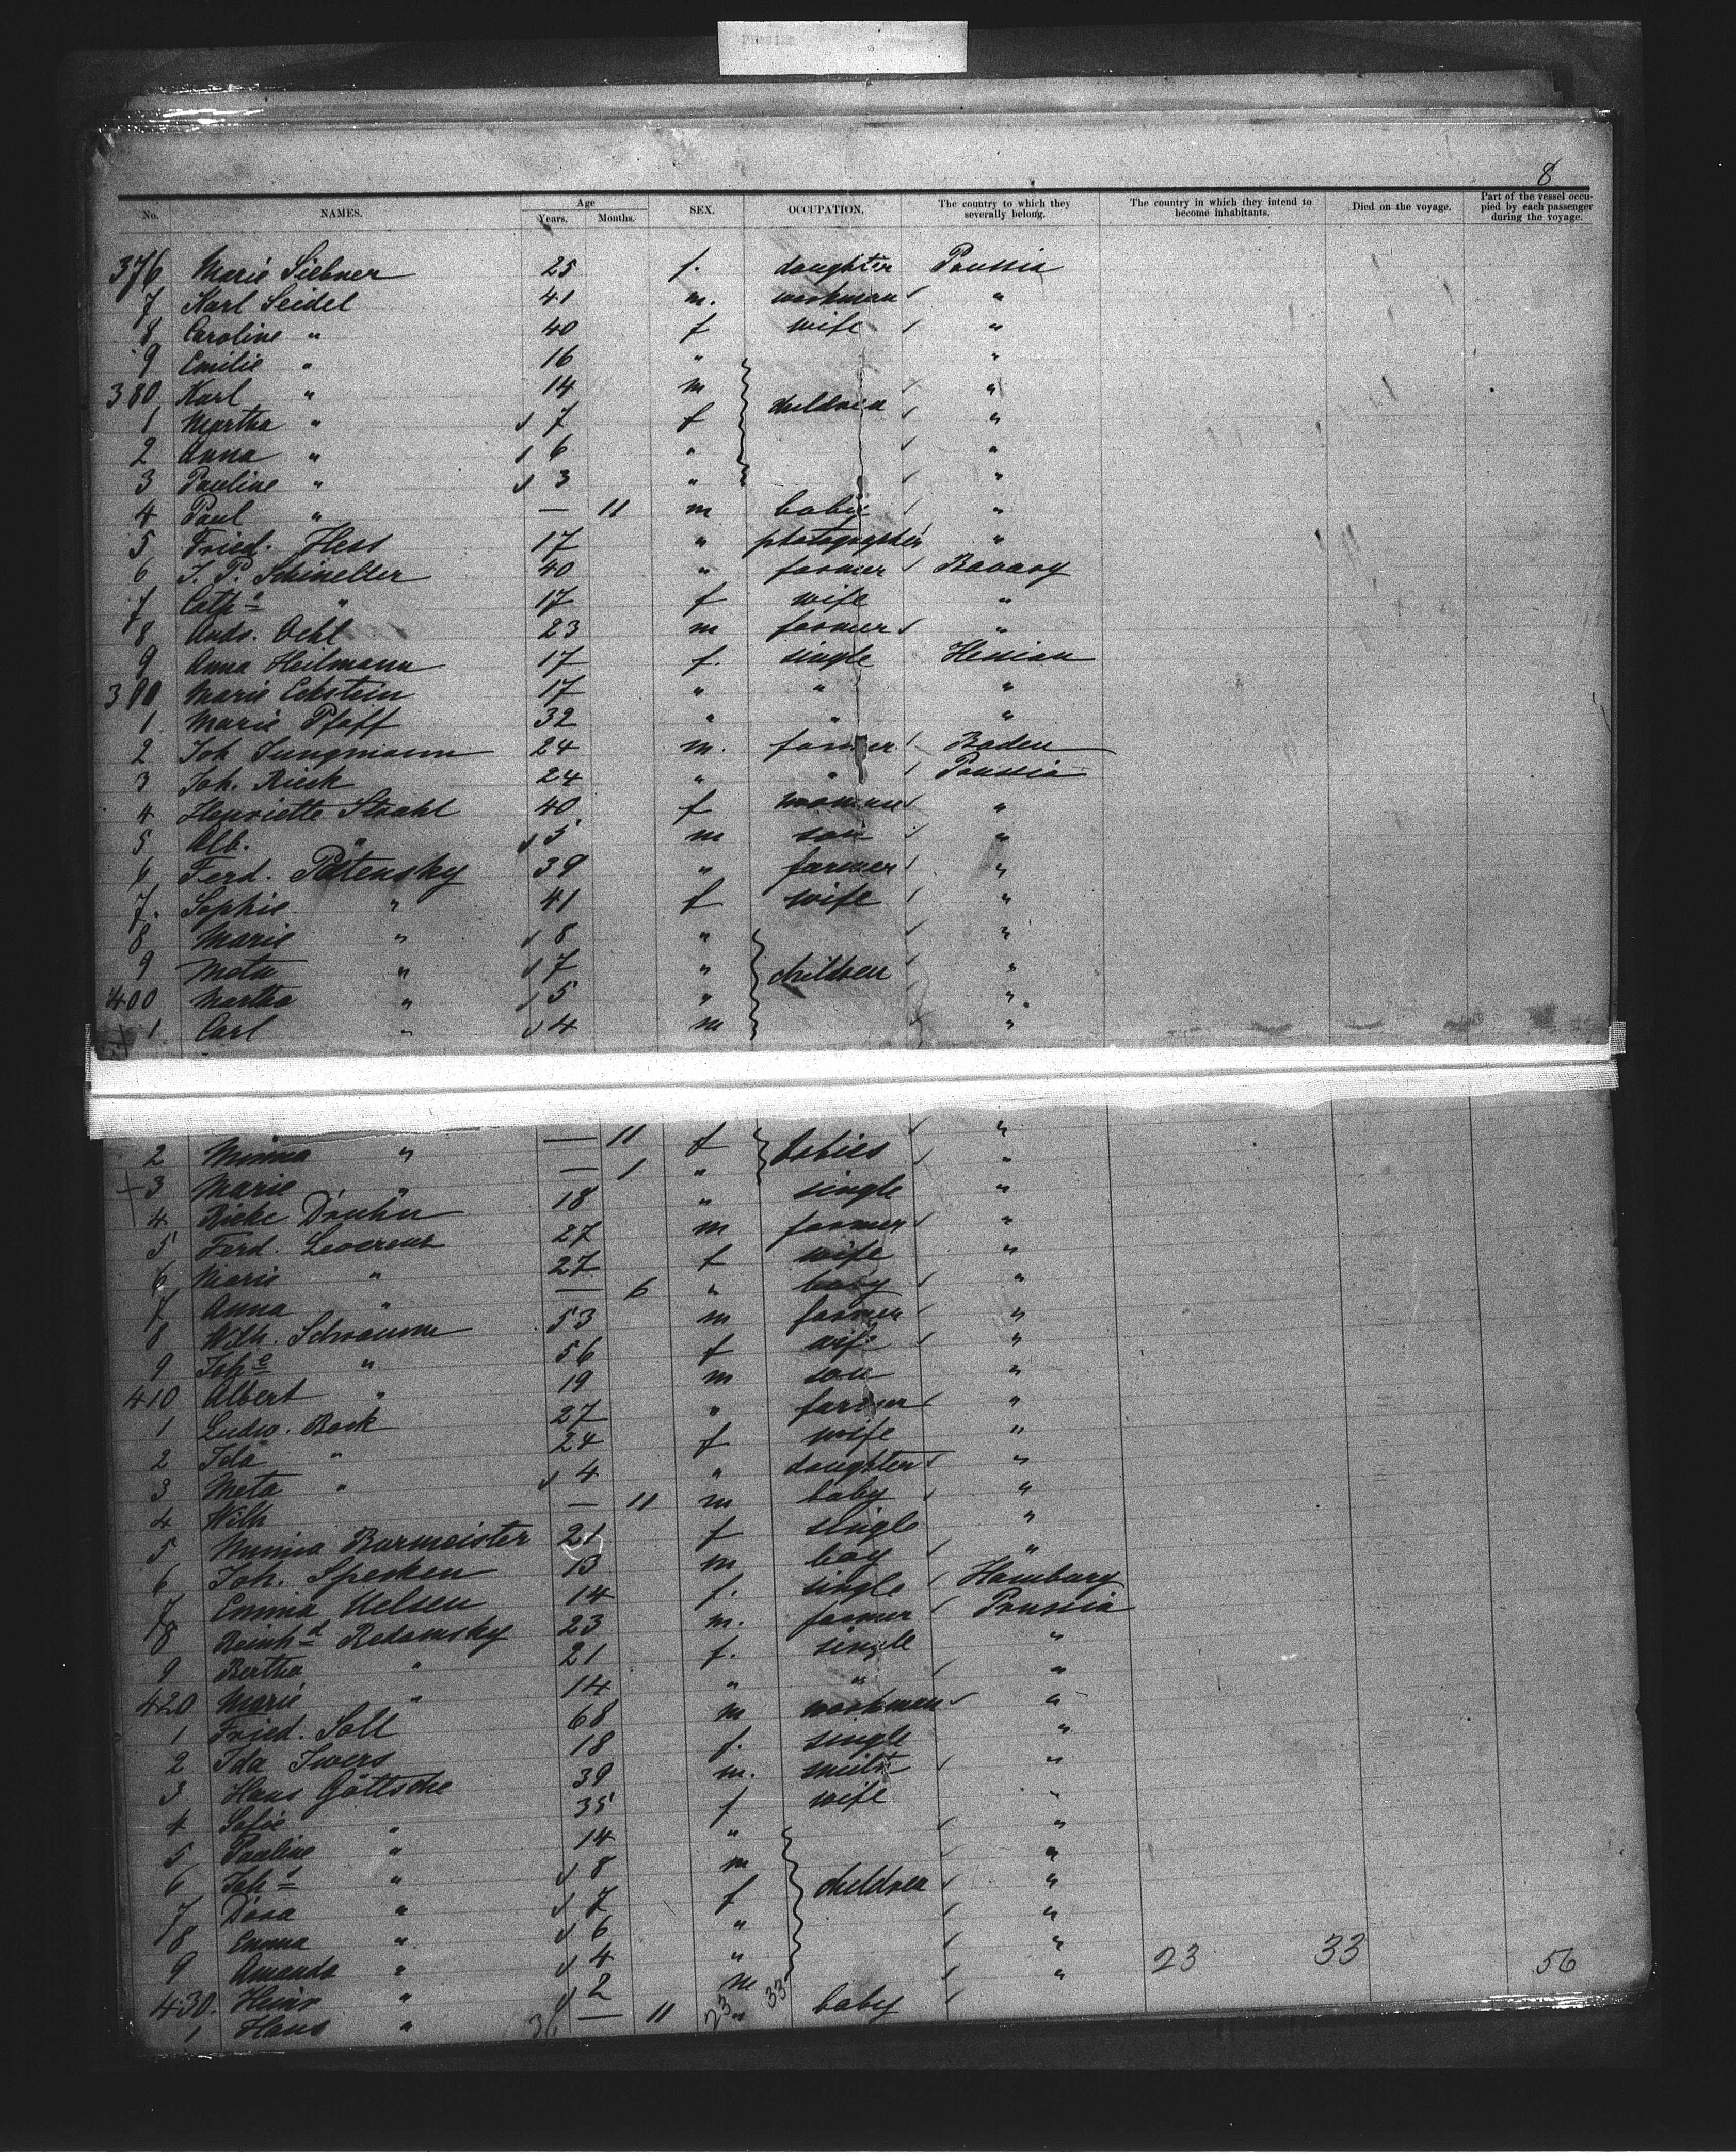 8
No. NAMES. Age Years. Months. SEX. OCCUPATION, The country to which they severally belong. The country in which they intend to become inhabitants. Died on the voyage. Part of the vessel occupied by each passenger during the voyage.
376 Marie Siebner 25 f. daughter Prussia
7 Karl Seidel 41 m. workman "
8 Caroline " 40 f wife "
9 Emilie " 16 " "
380 Karl " 14 m "
1 Martha " 7 f children "
2 Anna " 6 " "
3 Pauline " 3 " "
4 Paul " — 11 m babie "
5 Fried. Hess 17 " photographer "
6 J. P. Schineller 40 " farmer Bavary
7 Cath.e " 17 f wife "
8 Andr. Oehl 23 m farmer "
9 Anna Heilmann 17 f. single Hessian
390 Marie Eckstein 17 " " "
1 Marie Pfaff 32 " " "
2 Joh Jungmann 24 m. farmer Baden
3 Joh. Rieck 24 " " Prussia
4 Henriette Strahl 40 f woman "
5 Alb. " 5 m son "
6 Ferd. Patensky 39 " farmer "
7. Sophie " 41 f wife "
8 Marie " 8 " "
9 Meta " 7 " children "
400 Martha " 5 " "
+ 1 Carl " 4 m "
2 Minna " — 11 f babies "
+ 3 Marie " — 1 " "
4 Rieke Druhn 18 " single "
5 Ferd. Leverenz 27 m farmer "
6 Marie " 27 f wife "
7 Anna " — 6 " baby "
8 Wilh. Schramm 53 m farmer "
9 Joh.e " 56 f wife "
410 Albert " 19 m son "
1 Ludw. Bock 27 " farmer "
2 Ida " 24 f wife "
3 Meta " 4 " daughter "
4 Wilh — 11 m baby "
5 Minna Burmeister 21 f single "
6 Joh. Specken 13 m boy "
7 Emma Uelsen 14 f. single Hamburg
8 Reinh.d Redomsky 23 m. farmer Prussia
9 Bertha " 21 f. single "
420 Marie " 14 " " "
1 Fried. Soll 68 m workman "
2 Ida Iwers 18 f. single "
3 Hans Göttsche 39 m. smith "
4 Sofie " 35 f wife "
5 Pauline " 14 " "
6 Joh.s " 8 m "
7 Dora " 7 f children "
8 Emma " 6 " "
9 Amanda " 4 " "
430. Heinr " 2 m "
1 Hans " — 11 " baby
23 33
23 33 56